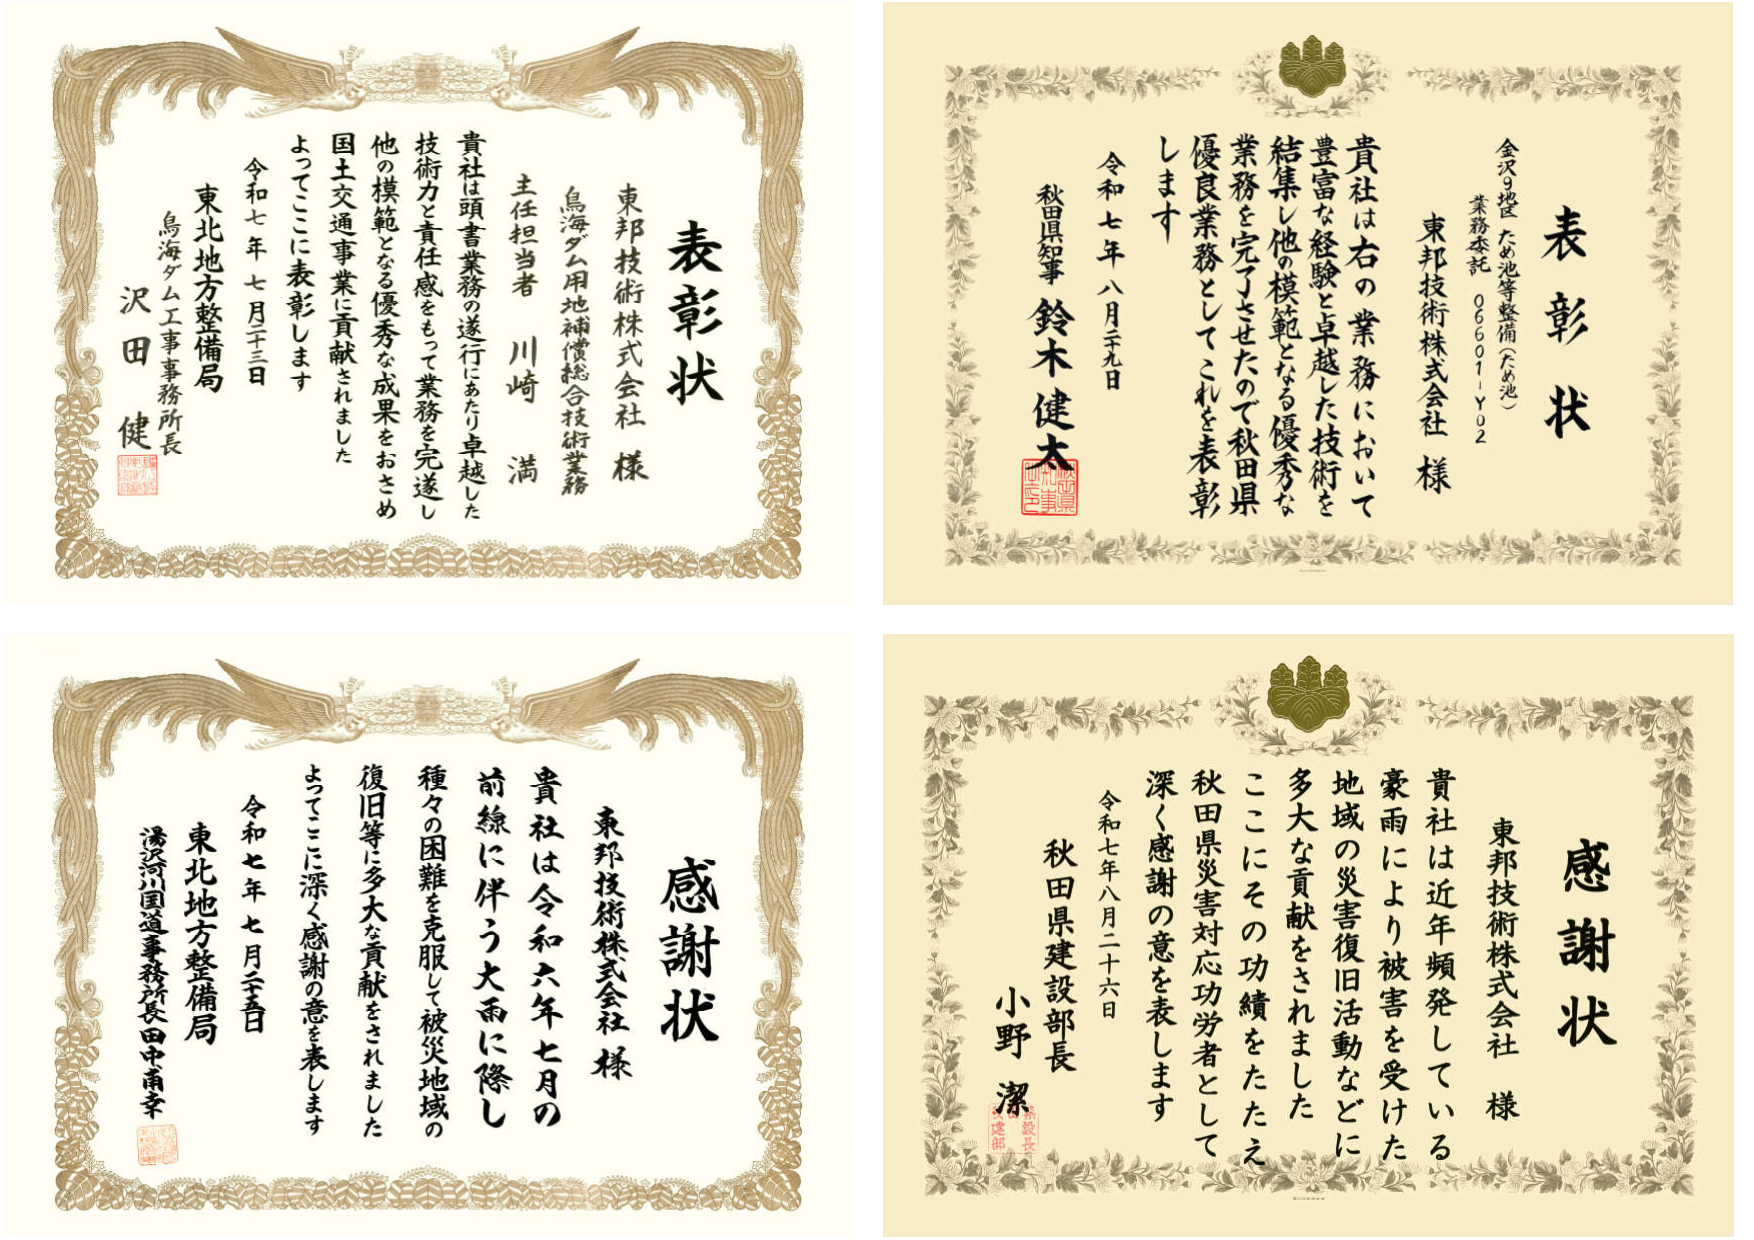 表彰状
東邦技術株式会社 様
鳥海ダム用地補償総合技術業務
主任担当者 川崎 満
貴社は頭書業務の遂行にあたり卓越した
技術力と責任感をもって業務を完遂し
他の模範となる優秀な成果をおさめ
国土交通事業に貢献されました
よってここに表彰します
令和七年七月二十三日
東北地方整備局
鳥海ダム工事事務所長
沢田 健
表彰状
金沢9地区 ため池等整備(ため池)
業務委託 06601-Y02
東邦技術株式会社 様
貴社は右の業務において
豊富な経験と卓越した技術を
結集し他の模範となる優秀な
業務を完了させたので秋田県
優良業務としてこれを表彰
します
令和七年八月二十九日
秋田県知事 鈴木健太
感謝状
東邦技術株式会社 様
貴社は令和六年七月の
前線に伴う大雨に際し
種々の困難を克服して被災地域の
復旧等に多大な貢献をされました
よってここに深く感謝の意を表します
令和七年七月二十五日
東北地方整備局
湯沢河川国道事務所長 田中南幸
感謝状
東邦技術株式会社 様
貴社は近年頻発している
豪雨により被害を受けた
地域の災害復旧活動などに
多大な貢献をされました
ここにその功績をたたえ
秋田県災害対応功労者として
深く感謝の意を表します
令和七年八月二十六日
秋田県建設部長
小野 潔